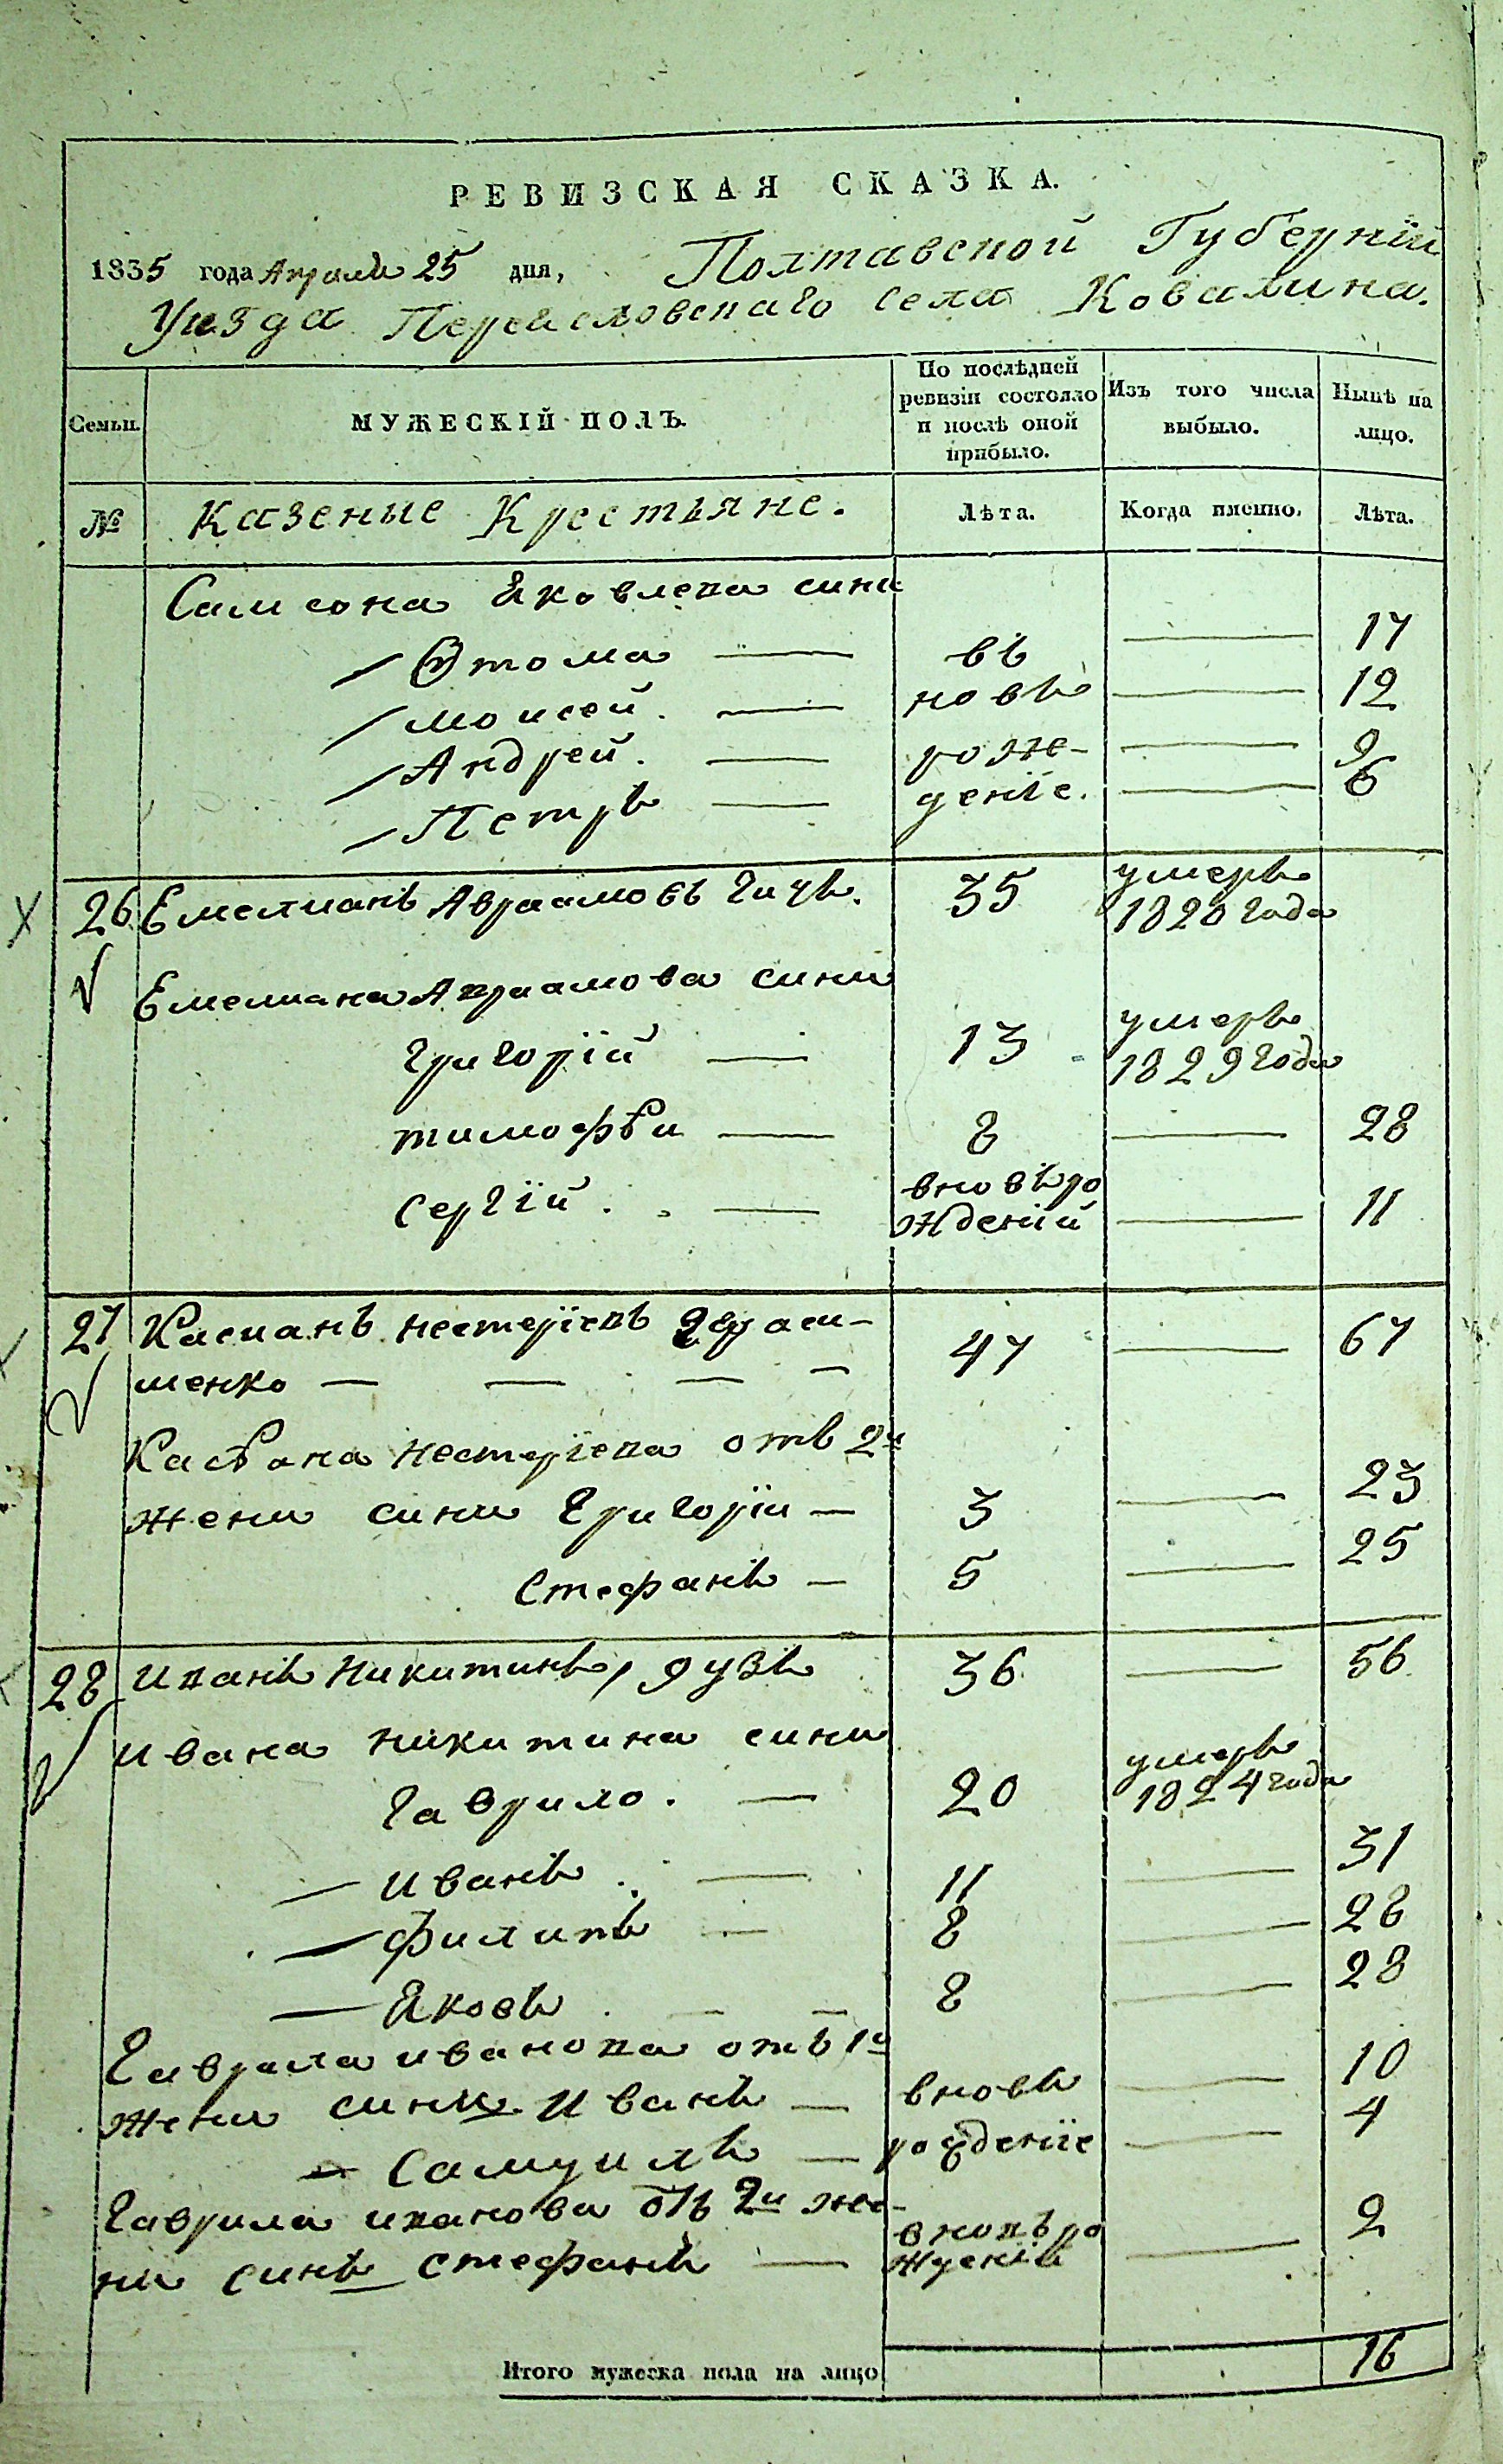 РЕВИЗСКАЯ СКАЗКА.
1835 года Априля 25 дня, Полтавской Губернїи
Уезда Переясловскаго села Ковалина.
Семьи.
МУЖЕСКІЙ ПОЛЪ.
По послѣдней ревизіи состояло и послѣ оной прибыло.
Изъ того числа выбыло.
Нынѣ на лицо.
№ Казеные Крестьяне. Лѣта. Когда именно. Лѣта.
Самсона Яковлева сини
Ѳтома — въ — 17
моисей. — новь — 12
Андрей. — рожде- — 9
Петръ — денїе. — 6
26 Емелианъ Авраамовъ 35 умеръ 1820 года
Емелиана Авраамова сини
Григорїй — 13 умеръ 1829 года
тимофѣи — 8 — 28
Сергїй. — вновьро ждениїй — 11
27 Касианъ нестерїевъ Гераси- 47 — 67
менко — — — —
Касѣана нестерїева отъ 2й
жени сини Григорїи — 3 — 23
Стефанъ — 5 — 25
28 иванъ Никитинъ, дузь 36 — 56
ивана никитина сини
Гаврило. — 20 умеръ 1824 года
— иванъ. — 11 — 31
— филипъ — 8 — 28
— Яковъ. — — 8 — 28
Гаврила иванова отъ 1й
жени сини иванъ — вновь — 10
Самуилъ — рожденїе — 4
Гаврила иванова отъ 2й же-
ни синъ стефанъ — вновъро жденїй — 2
Итого мужеска пола на лицо 16